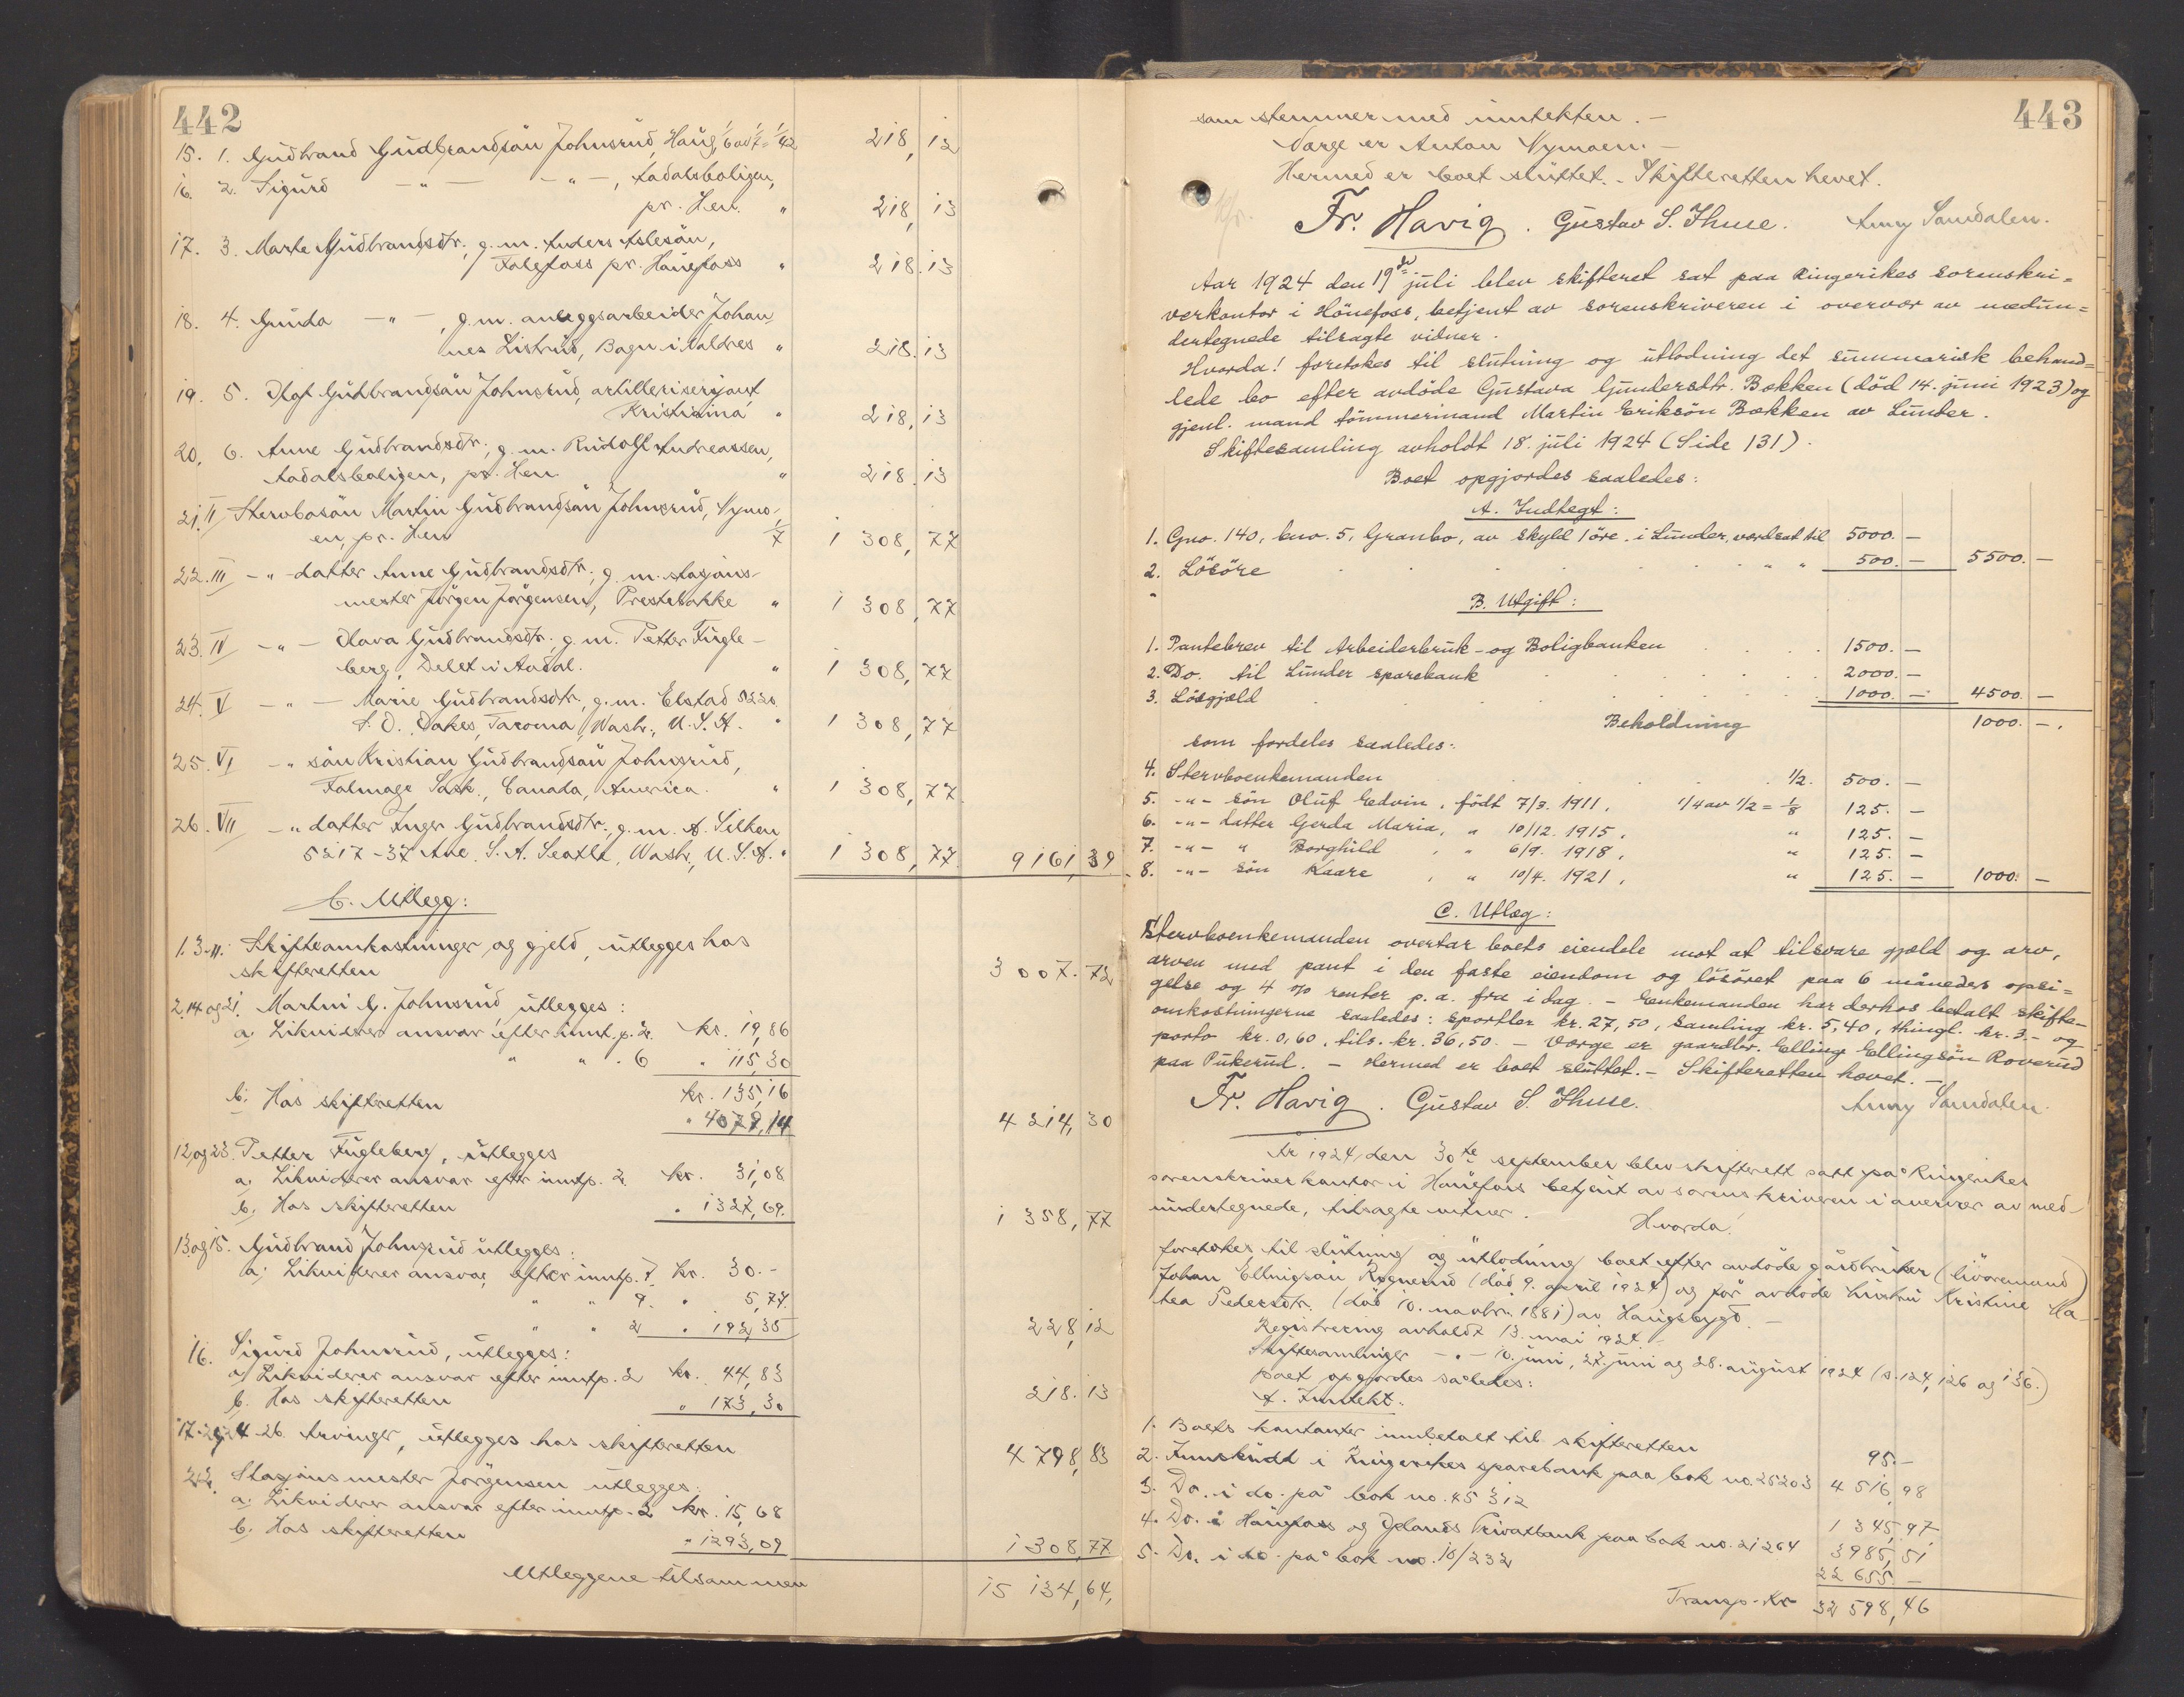 442
15. 1. Gudbrand Gudbrandsøn Johnsrud, Haug, 1/6 av 1/7 = 1/42 218,12
16. 2. Sigurd -"- -"-, Aadalsboligen,
pr. Hen. " 218,13
17. 3. Marte Gudbrandsdtr. g.m. Anders Aslesøn,
Follofoss pr. Hønefoss " 218.13
18. 4. Gunda -"-, g.m. anleggsarbeider Johan-
nes Listrud, Bagn i Valdres " 218.13
19. 5. Olaf Gudbrandsøn Johnsrud, artillerisersjant
Kristiania " 218,13
20. 6. Anne Gudbrandsdtr., g.m. Rudolf Andreassen,
Aadalsboligen, pr. Hen " 218.13
21. II Stervbosøn Martin Gudbrandsøn Johnsrud, Nymo-
en, pr. Hen 1/7 1 308,77
22. III -"- datter Anne Gudbrandsdtr., g.m. stasjons-
mester Jørgen Jørgensen, Prestebakke " 1 308,77
23. IV -"- Olava Gudbrandsdtr. g.m. Petter Fugle-
berg, Delet i Aadal. " 1 308,77
24. V -"- Marie Gudbrandsdtr, g.m. Elstad 5220
S. D. Oakes, Tacoma, Wash., U.S.A. " 1 308,77
25. VI -"- søn Kristian Gudbrandsøn Johnsrud,
Talmage Sask., Canada, America. " 1 308,77
26. VII -"- datter Inger Gudbrandsdtr., g.m. A. Selken
5217-37 Ave. S.A. Seatle, Wash., U.S.A. " 1 308,77 9161,39
C. Utlegg:
1. 3-11. Skifteomkostninger og gjeld, utlegges hos
skifteretten 3007.72
2, 14 og 21. Martin G. Johnsrud utlegges:
a. Likviderer ansvar efter innt.p. 2. kr. 19,86
" " 6 " 115,30
kr. 135,16
b. Hos skifteretten " 4079,14 4214,30
12 og 23. Petter Fugleberg, utlegges
a. Likviderer ansvar efter inntp. 2. kr. 31,08
b. Hos skifteretten " 1327,69. 1 358,77
13 og 15. Gudbrand Johnsrud utlegges:
a. Likviderer ansvar efter inntp. 7. kr. 30.-
" " 9. " 5,77.
" " 2 " 192,35 228,12
16. Sigurd Johnsrud, utlegges:
a. Likviderer ansvar efter inntp. 2 kr. 44,83
b. Hos skifteretten " 173,30 218.13
17-20, 24-26 Arvinger, utlegges hos skifteretten 4798,83
22. Stasjonsmester Jørgensen utlegges.
a. Likviderer ansvar efter inntp. 2 kr. 15,68
b. Hos skifteretten " 1293,09 1308,77
Utleggene tilsammen 15 134,64,
443
som stemmer med inntekten. -
Verge er Anton Nymoen. -
Hermed er boet sluttet. - Skifteretten hevet.
Fr. Havig. Gustav S. Thue. Amy Sandalen.
Aar 1924 den 19de juli blev skifteret sat paa Ringerikes sorenskri=
verkontor i Hönefoss, betjent av sorenskriveren i overvær av medun=
dertegnede tilsagte vidner.
Hvorda! foretokes til slutning og utlodning det summarisk behand=
lede bo efter avdöde Gustava Gundersdtr. Bækken (död 14. juni 1923) og
gjenl. mand tömmermand Martin Eriksön Bækken av Lunder.
Skiftesamling avholdt 18. juli 1924 (Side 131).
Boet opgjordes saaledes:
A. Indtegt:
1. Gno. 140, bno. 5, Granbo, av skyld 1 öre, i Lunder, værdsat til 5000. -
2. Lösöre " " 500. - 5500. -
B. Utgift:
1. Pantebrev til Arbeiderbruk- og Boligbanken 1500. -
2. Do. til Lunder sparebank 2000. -
3. Lösgjæld 1000. - 4500. -
Beholdning 1000. -.
som fordeles saaledes:
4. Stervboenkemanden 1/2. 500. -
5. -"- sön Oluf Edvin, födt 7/3. 1911, 1/4 av 1/2 = 1/8 125. -
6. -"- datter Gerda Maria, " 10/12. 1915, " 125. -
7. -"- " Borghild, " 6/9. 1918, " 125. -
8. -"- sön Kaare, " 10/4. 1921, " 125. - 1000. -
C. Utlæg:
Stervboenkemanden overtar boets eiendele mot at tilsvare gjæld og arv,
arven med pant i den faste eiendom og lösöret paa 6 måneders opsi=
gelse og 4 % renter p.a. fra idag. - Enkemanden har derhos betalt skifte-
omkostningerne saaledes: sportler kr. 27,50, samling kr. 5,40, thingl. kr. 3.- og
porto kr. 0,60, tils. kr. 36,50. - Værge er gaardbr. Elling Ellingsön Roverud
paa Pukerud. - Hermed er boet sluttet. - Skifteretten hævet. -
Fr. Havig. Gustav S. Thue. Amy Sandalen.
År 1924, den 30te september blev skifterett satt på Ringerikes
sorenskriverkontor i Hønefoss betjent av sorenskriveren i overvær av med-
undertegnede, tilsagte vitner. Hvorda!
foretokes til slutning og utlodning boet efter avdøde gårdbruker (livøremand)
Johan Ellingsøn Rognerud (død 9. april 1924) og før avdøde hustru Kristine Ma-
tea Pedersdtr. (død 10. novbr. 1881) av Haugsbygd. -
Registrering avholdt 13. mai 1924.
Skiftesamlinger -"- 10. juni, 27. juni og 28. august 1924 (s. 124, 126 og 136.)
Boet opgjordes således:
A. Inntekt.
1. Boets kontanter innbetalt til skifteretten 95.-
2. Innskudd i Ringerikes sparebank paa bok no. 25203 4516,98
3. Do. i do. på bok no. 45312 1 345,97
4. Do. i Hønefoss og Oplands Privatbank paa bok no. 21264 3985,51
5. Do. i do. på bok no. 10/232 22 655.-
Transp. Kr 32 598,46